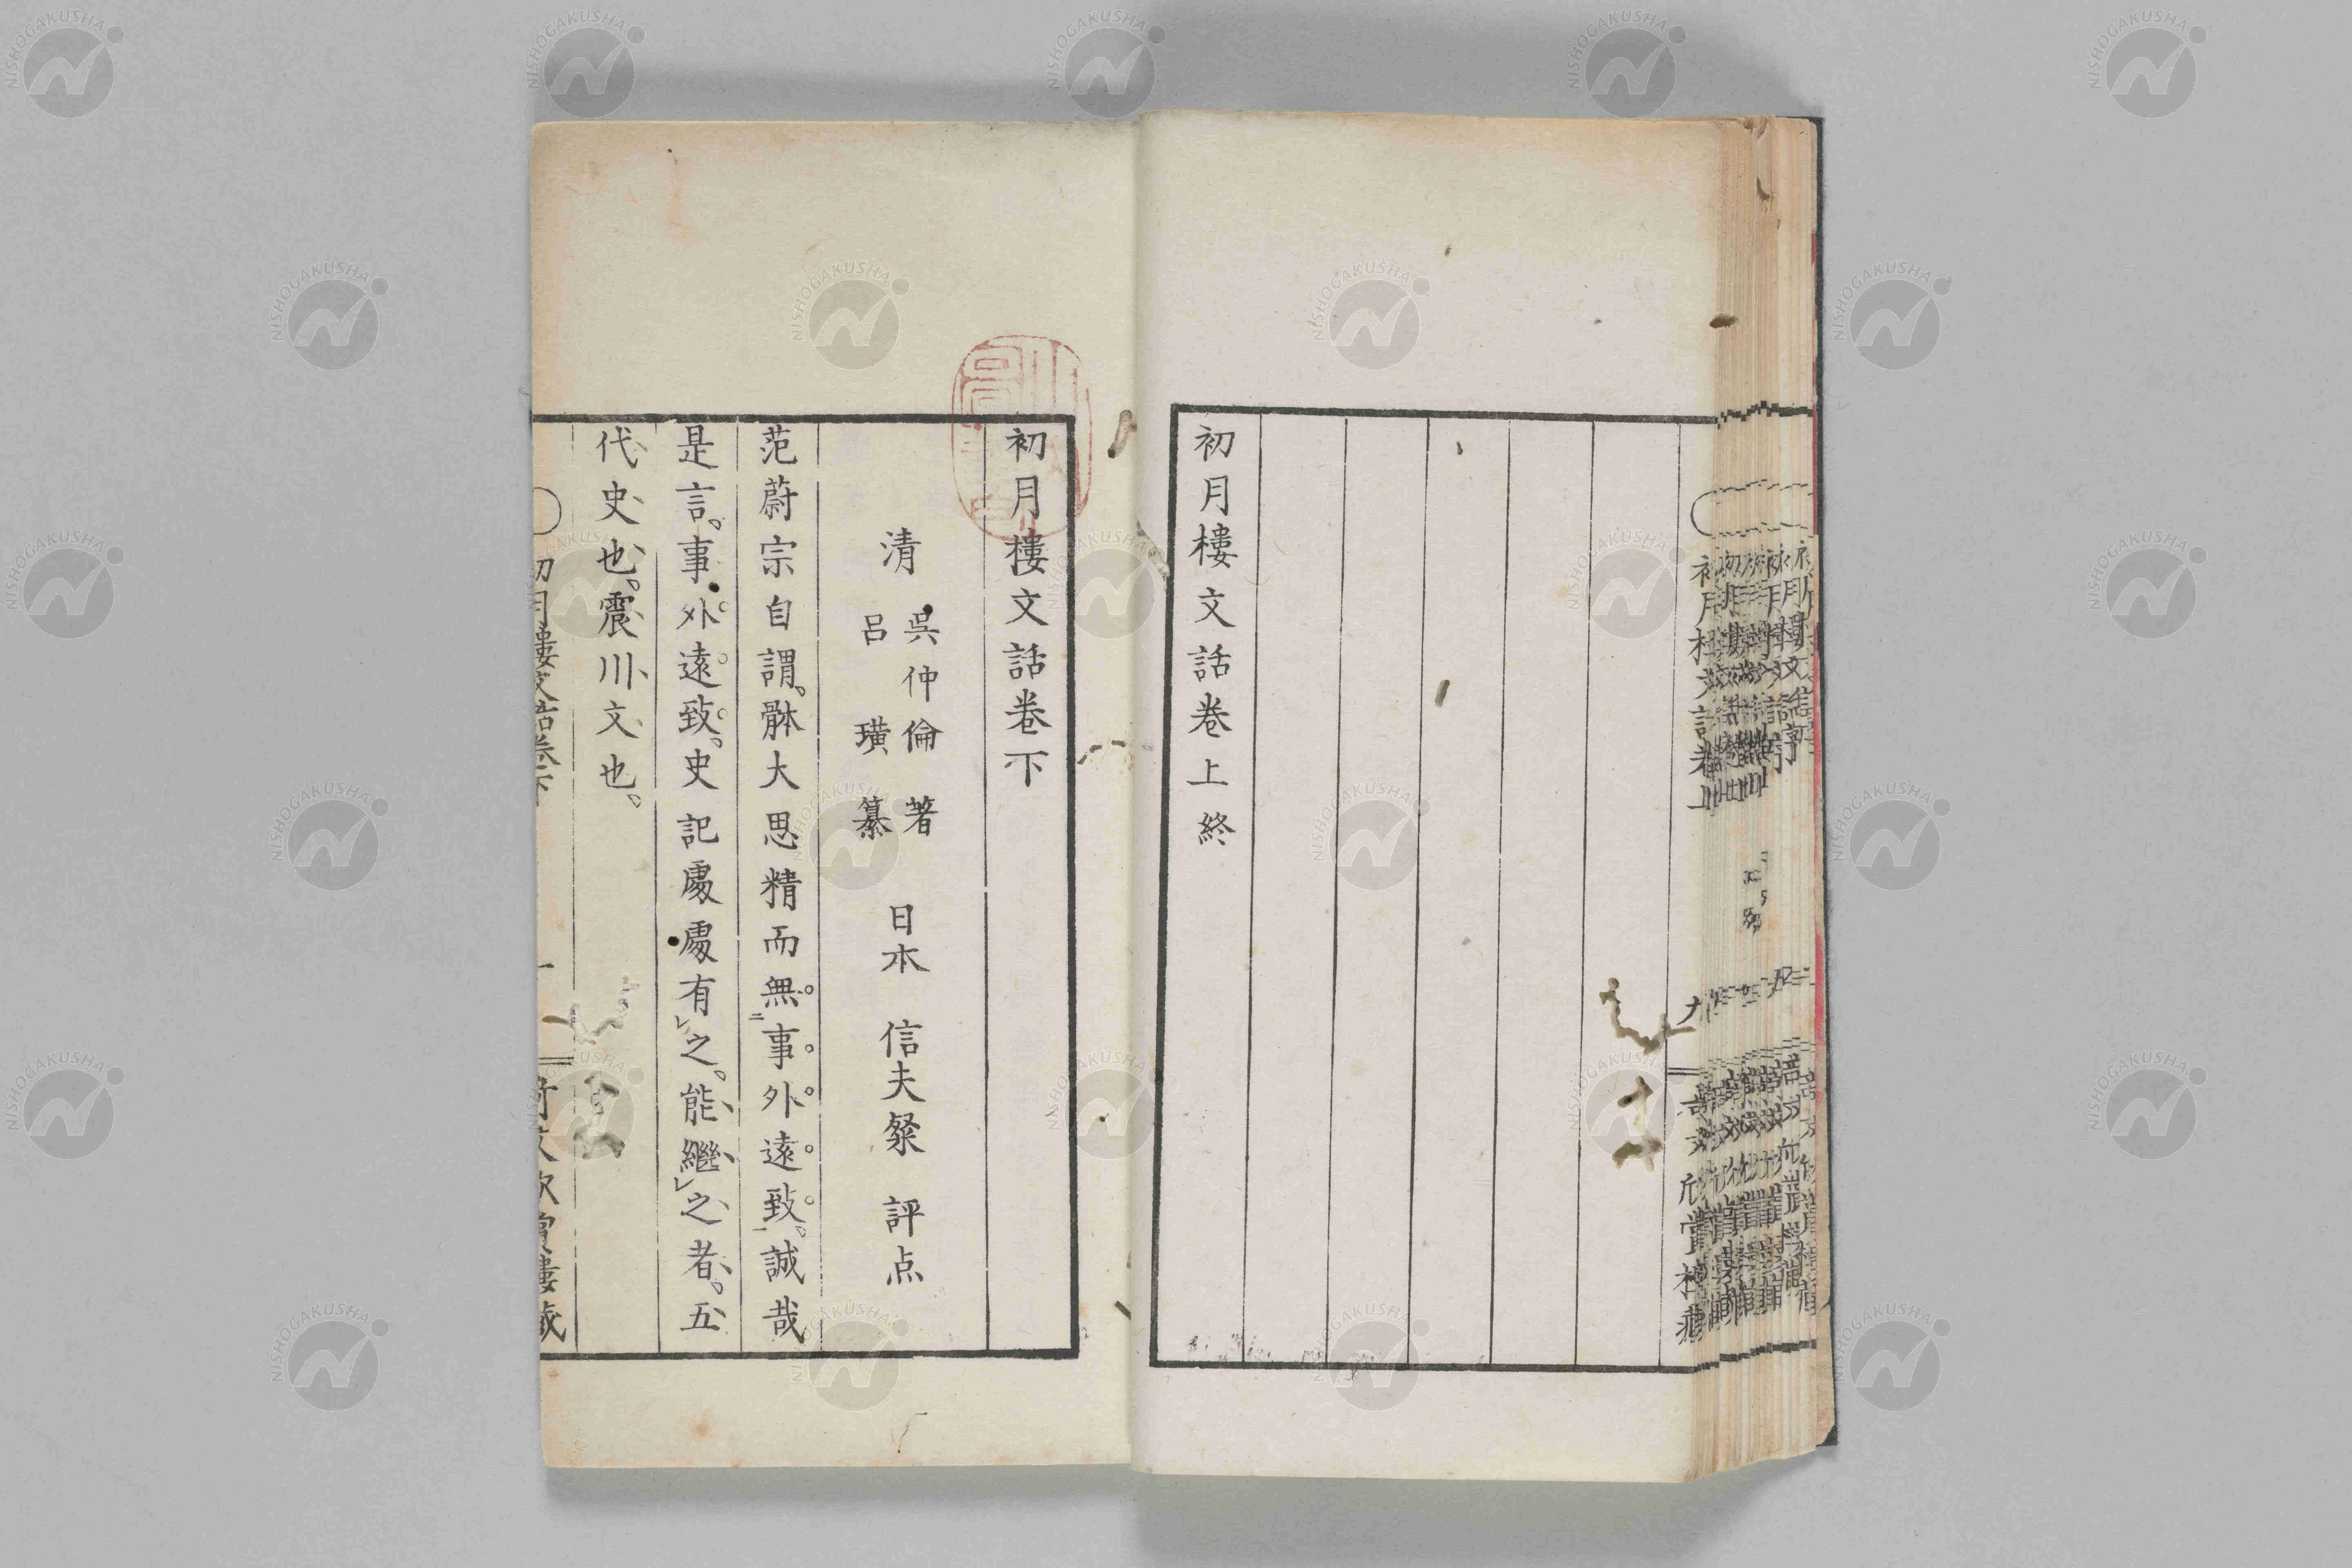 初月樓文話卷上終
初月樓文話卷下
清 吳仲倫 著
呂璜 纂
日本 信夫粲 評点
范蔚宗自謂。骵大思精而無事外遠致。誠哉
是言。事外遠致。史記處處有之。能繼之者。五
代史也。震川文也。
初月樓文話卷下
一
奇文欣賞樓藏
NISHOGAKUSHA